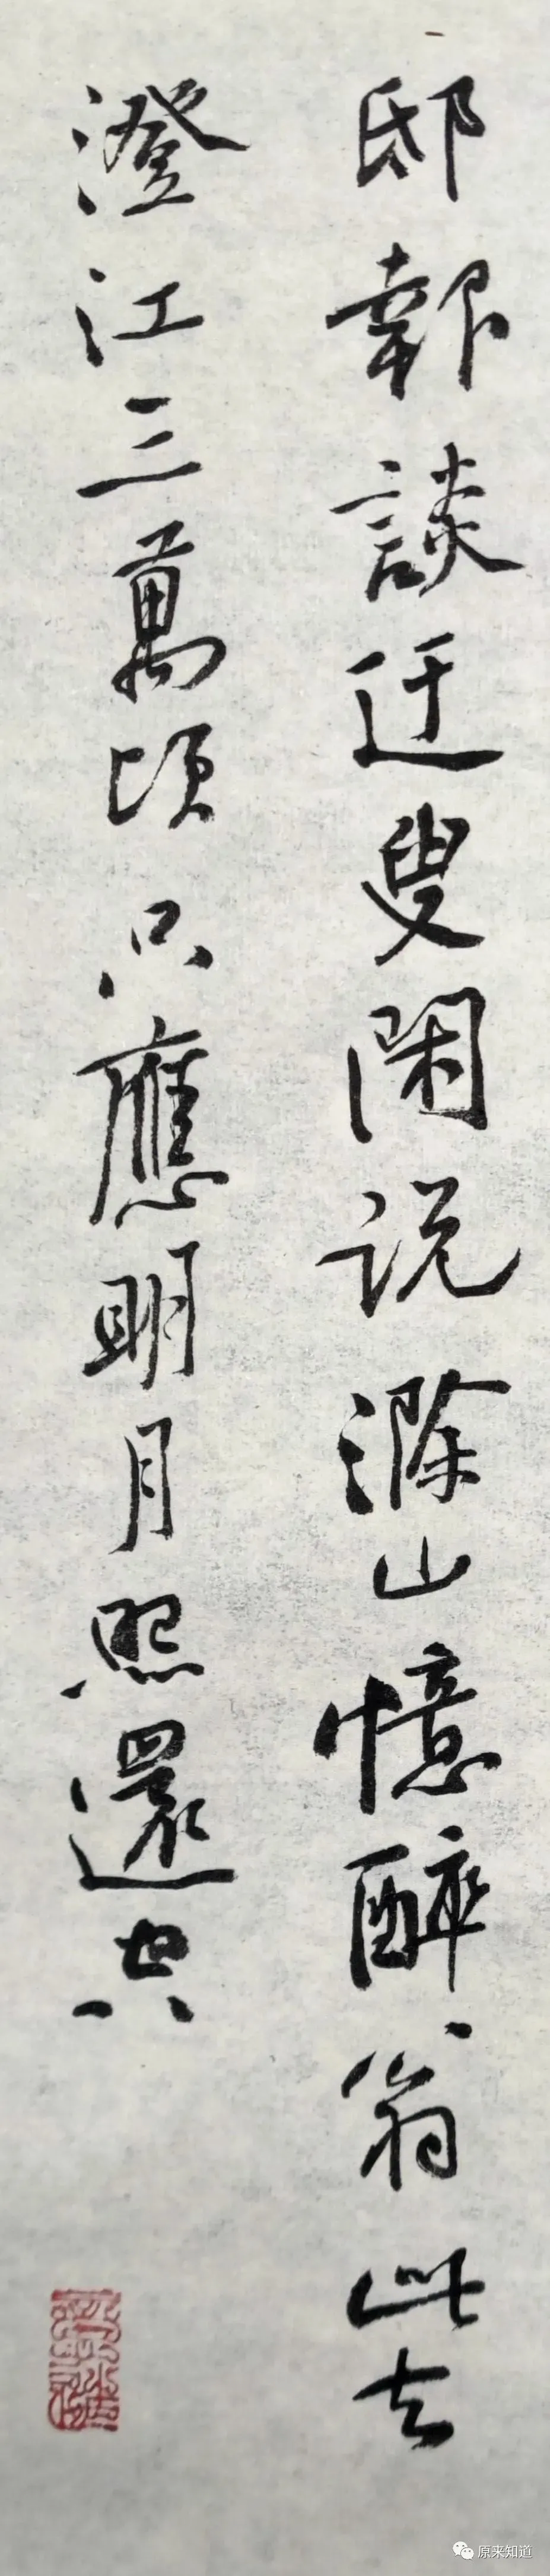 邸報談迂叟閑说滁山憶醉翁此去
澄江三萬頃只應明月照還空
原来知道